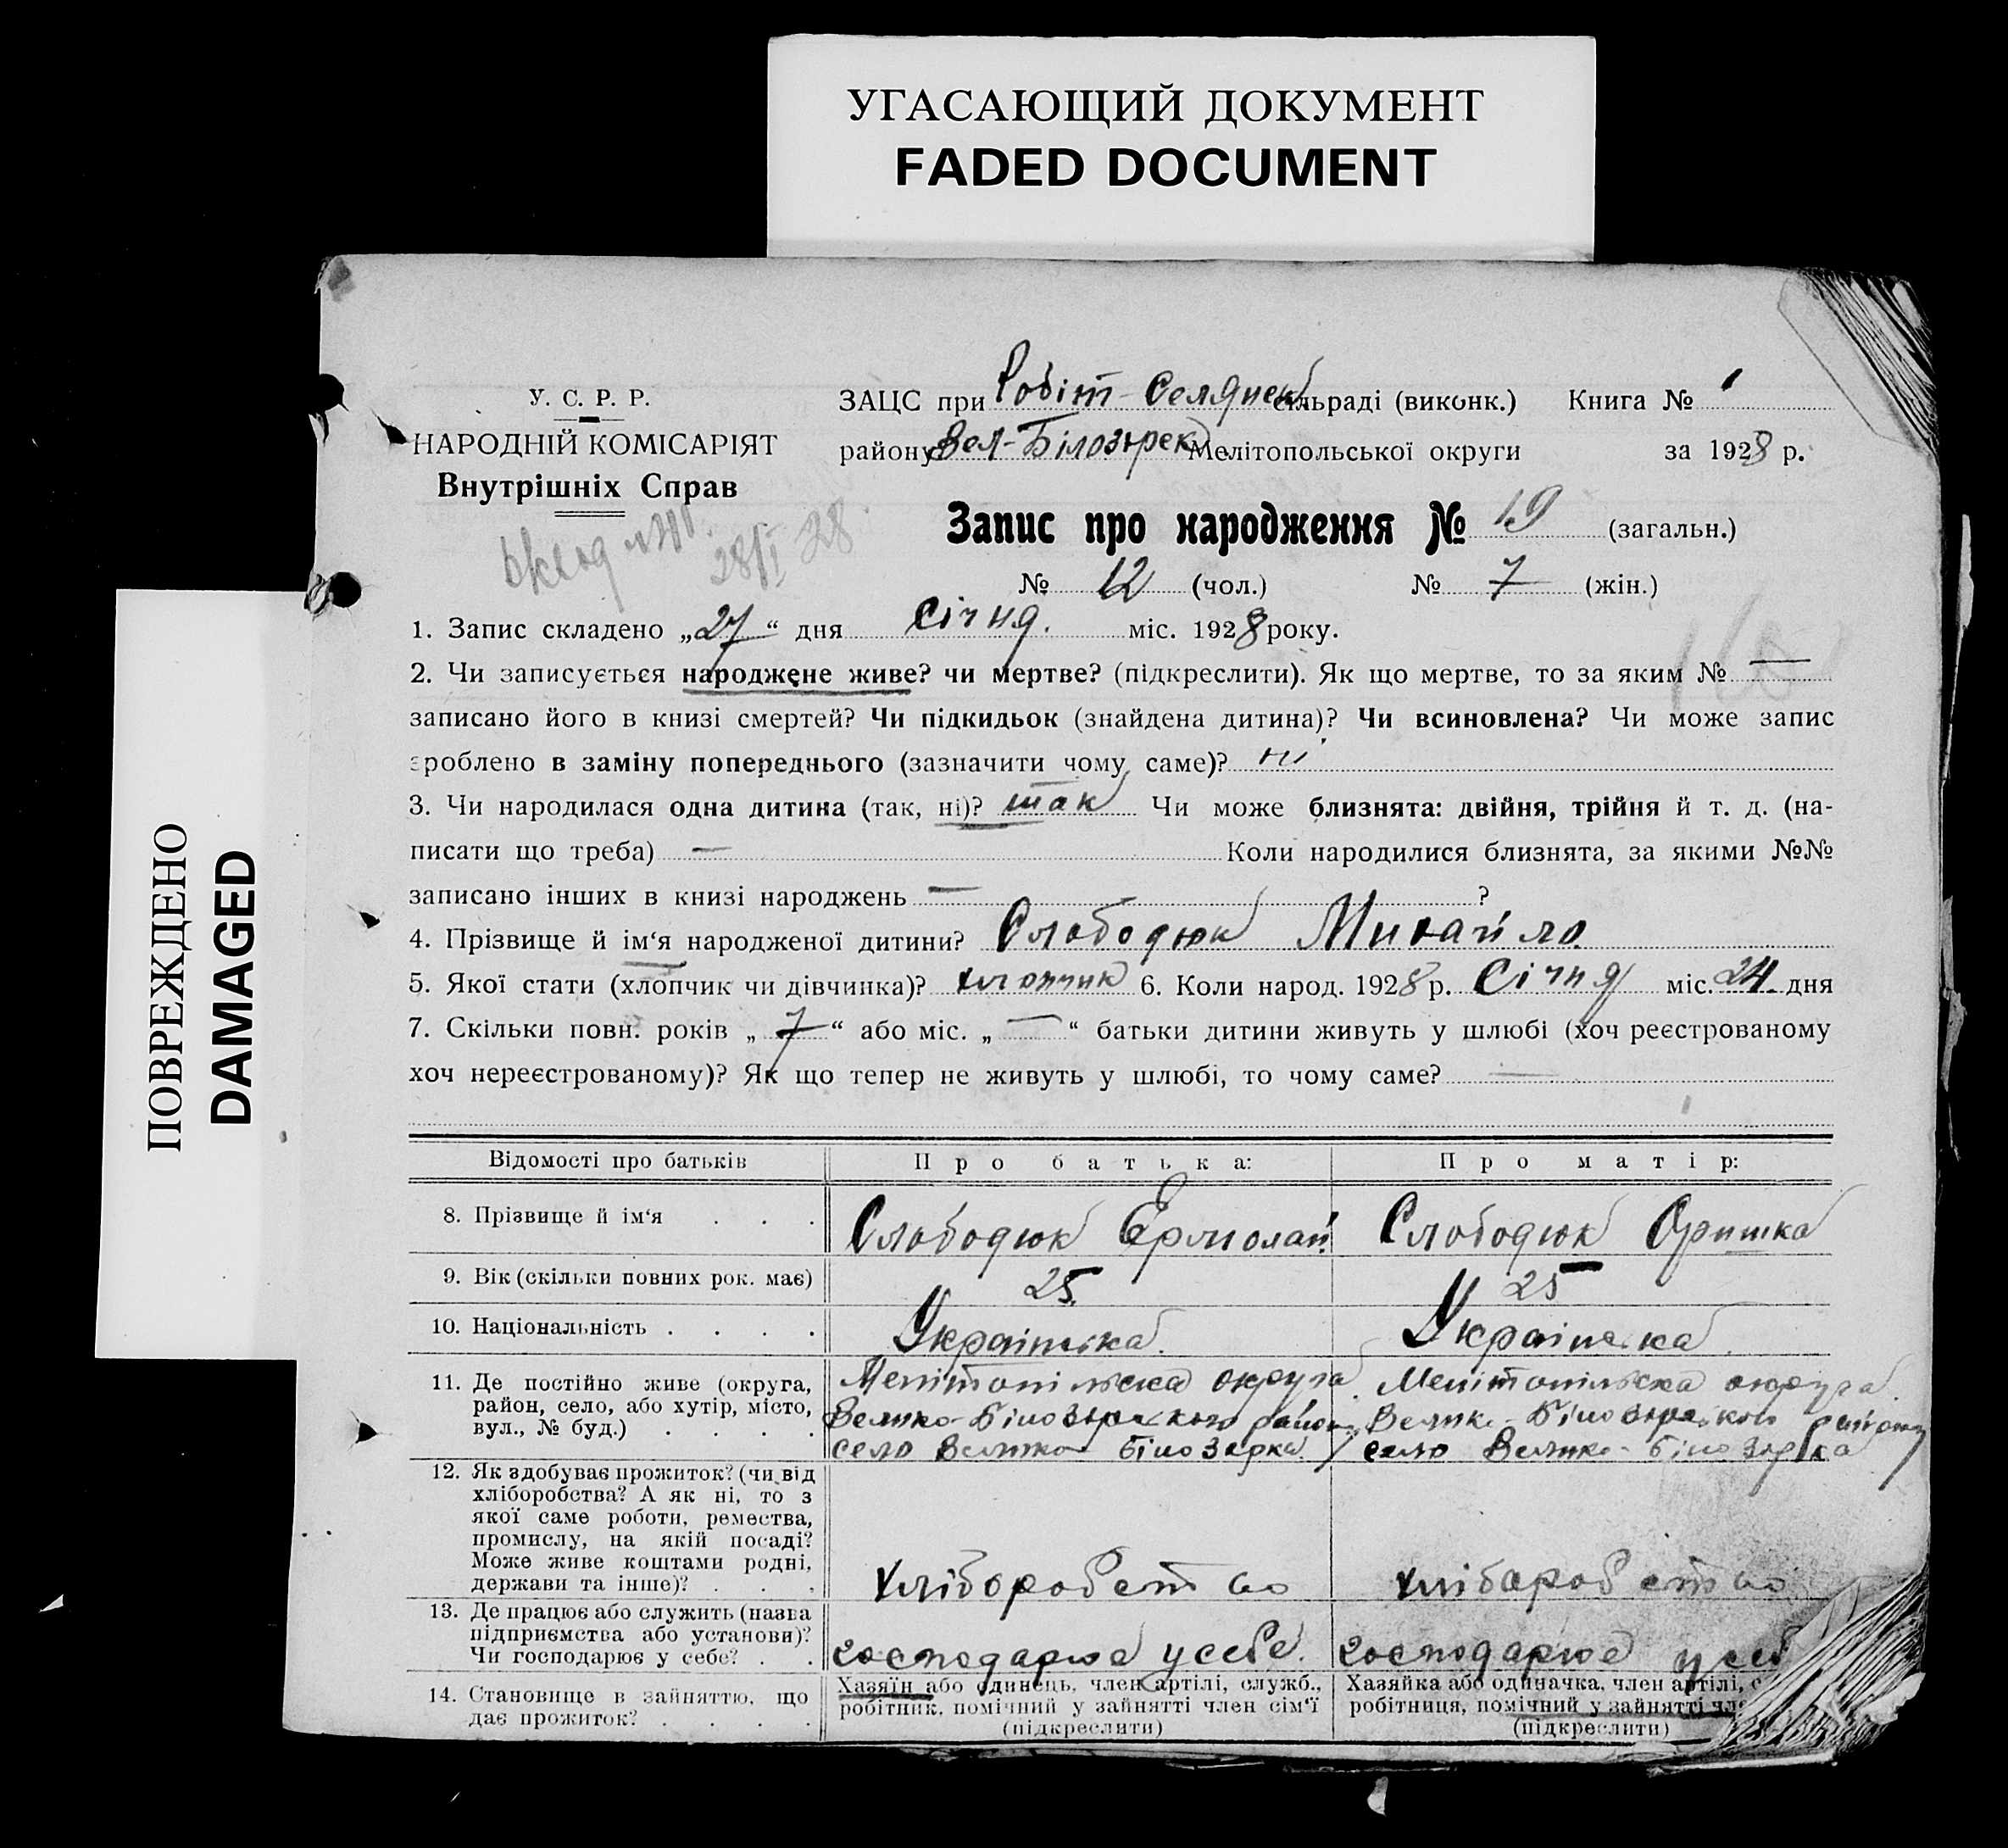 УГАСАЮЩИЙ ДОКУМЕНТ
FADED DOCUMENT
ПОВРЕЖДЕНО
DAMAGED
У. С. Р. Р.
НАРОДНІЙ КОМІСАРІЯТ
Внутрішніх Справ
28/I 28.
ЗАЦС при Робіт-Селянск сільраді (виконк.) Книга № 1
району Вел-Білозерск Мелітопольської округи за 1928 р.
Запис про народження № 19 (загальн.)
№ 12 (чол.) № 7 (жін.)
1. Запис складено „27“ дня січня. міс. 1928 року.
2. Чи записується народжене живе? чи мертве? (підкреслити). Як що мертве, то за яким № —
записано його в книзі смертей? Чи підкидьок (знайдена дитина)? Чи всиновлена? Чи може запис
зроблено в заміну попереднього (зазначити чому саме)? ні
3. Чи народилася одна дитина (так, ні)? так Чи може близнята: двійня, трійня й т. д. (на-
писати що треба) — Коли народилися близнята, за якими №№
записано інших в книзі народжень — ?
4. Прізвище й ім‘я народженої дитини? Слободюк Михайло
5. Якої стати (хлопчик чи дівчинка)? хлопчик 6. Коли народ. 1928 р. Січня міс. 24 дня
7. Скільки повн. років „7“ або міс. „—“ батьки дитини живуть у шлюбі (хоч реєстрованому
хоч нереєстрованому)? Як що тепер не живуть у шлюбі, то чому саме? —
Відомості про батьків Про батька: Про матір:
8. Прізвище й ім‘я . . . Слободюк Ермолай Слободюк Оришка
9. Вік (скільки повних рок. має) 25 25
10. Національність . . . . Українська. Українська.
11. Де постійно живе (округа, район, село, або хутір, місто, вул., № буд.) . . . .
Мелітопільска округа
Велико-Білозерського району
село Велико Білозерка
Мелітопільска округа.
Велико-Білозерського району
село Велико-Білозерка
12. Як здобуває прожиток? (чи від
хліборобства? А як ні, то з
якої саме роботи, ремества,
промислу, на якій посаді?
Може живе коштами родні,
держави та інше)? . . .
хліборобство хлібаробство
13. Де працює або служить (назва
підприємства або установи)?
Чи господарює у себе? . .
господарює у себе. господарює у себ
14. Становище в зайняттю, що
дає прожиток? . . . .
Хазяїн або одинець, член артілі, служб.,
робітник, помічний у зайнятті член сім‘ї
(підкреслити)
Хазяйка або одиначка, член артілі, с
робітниця, помічний у зайнятті чле
(підкреслити)